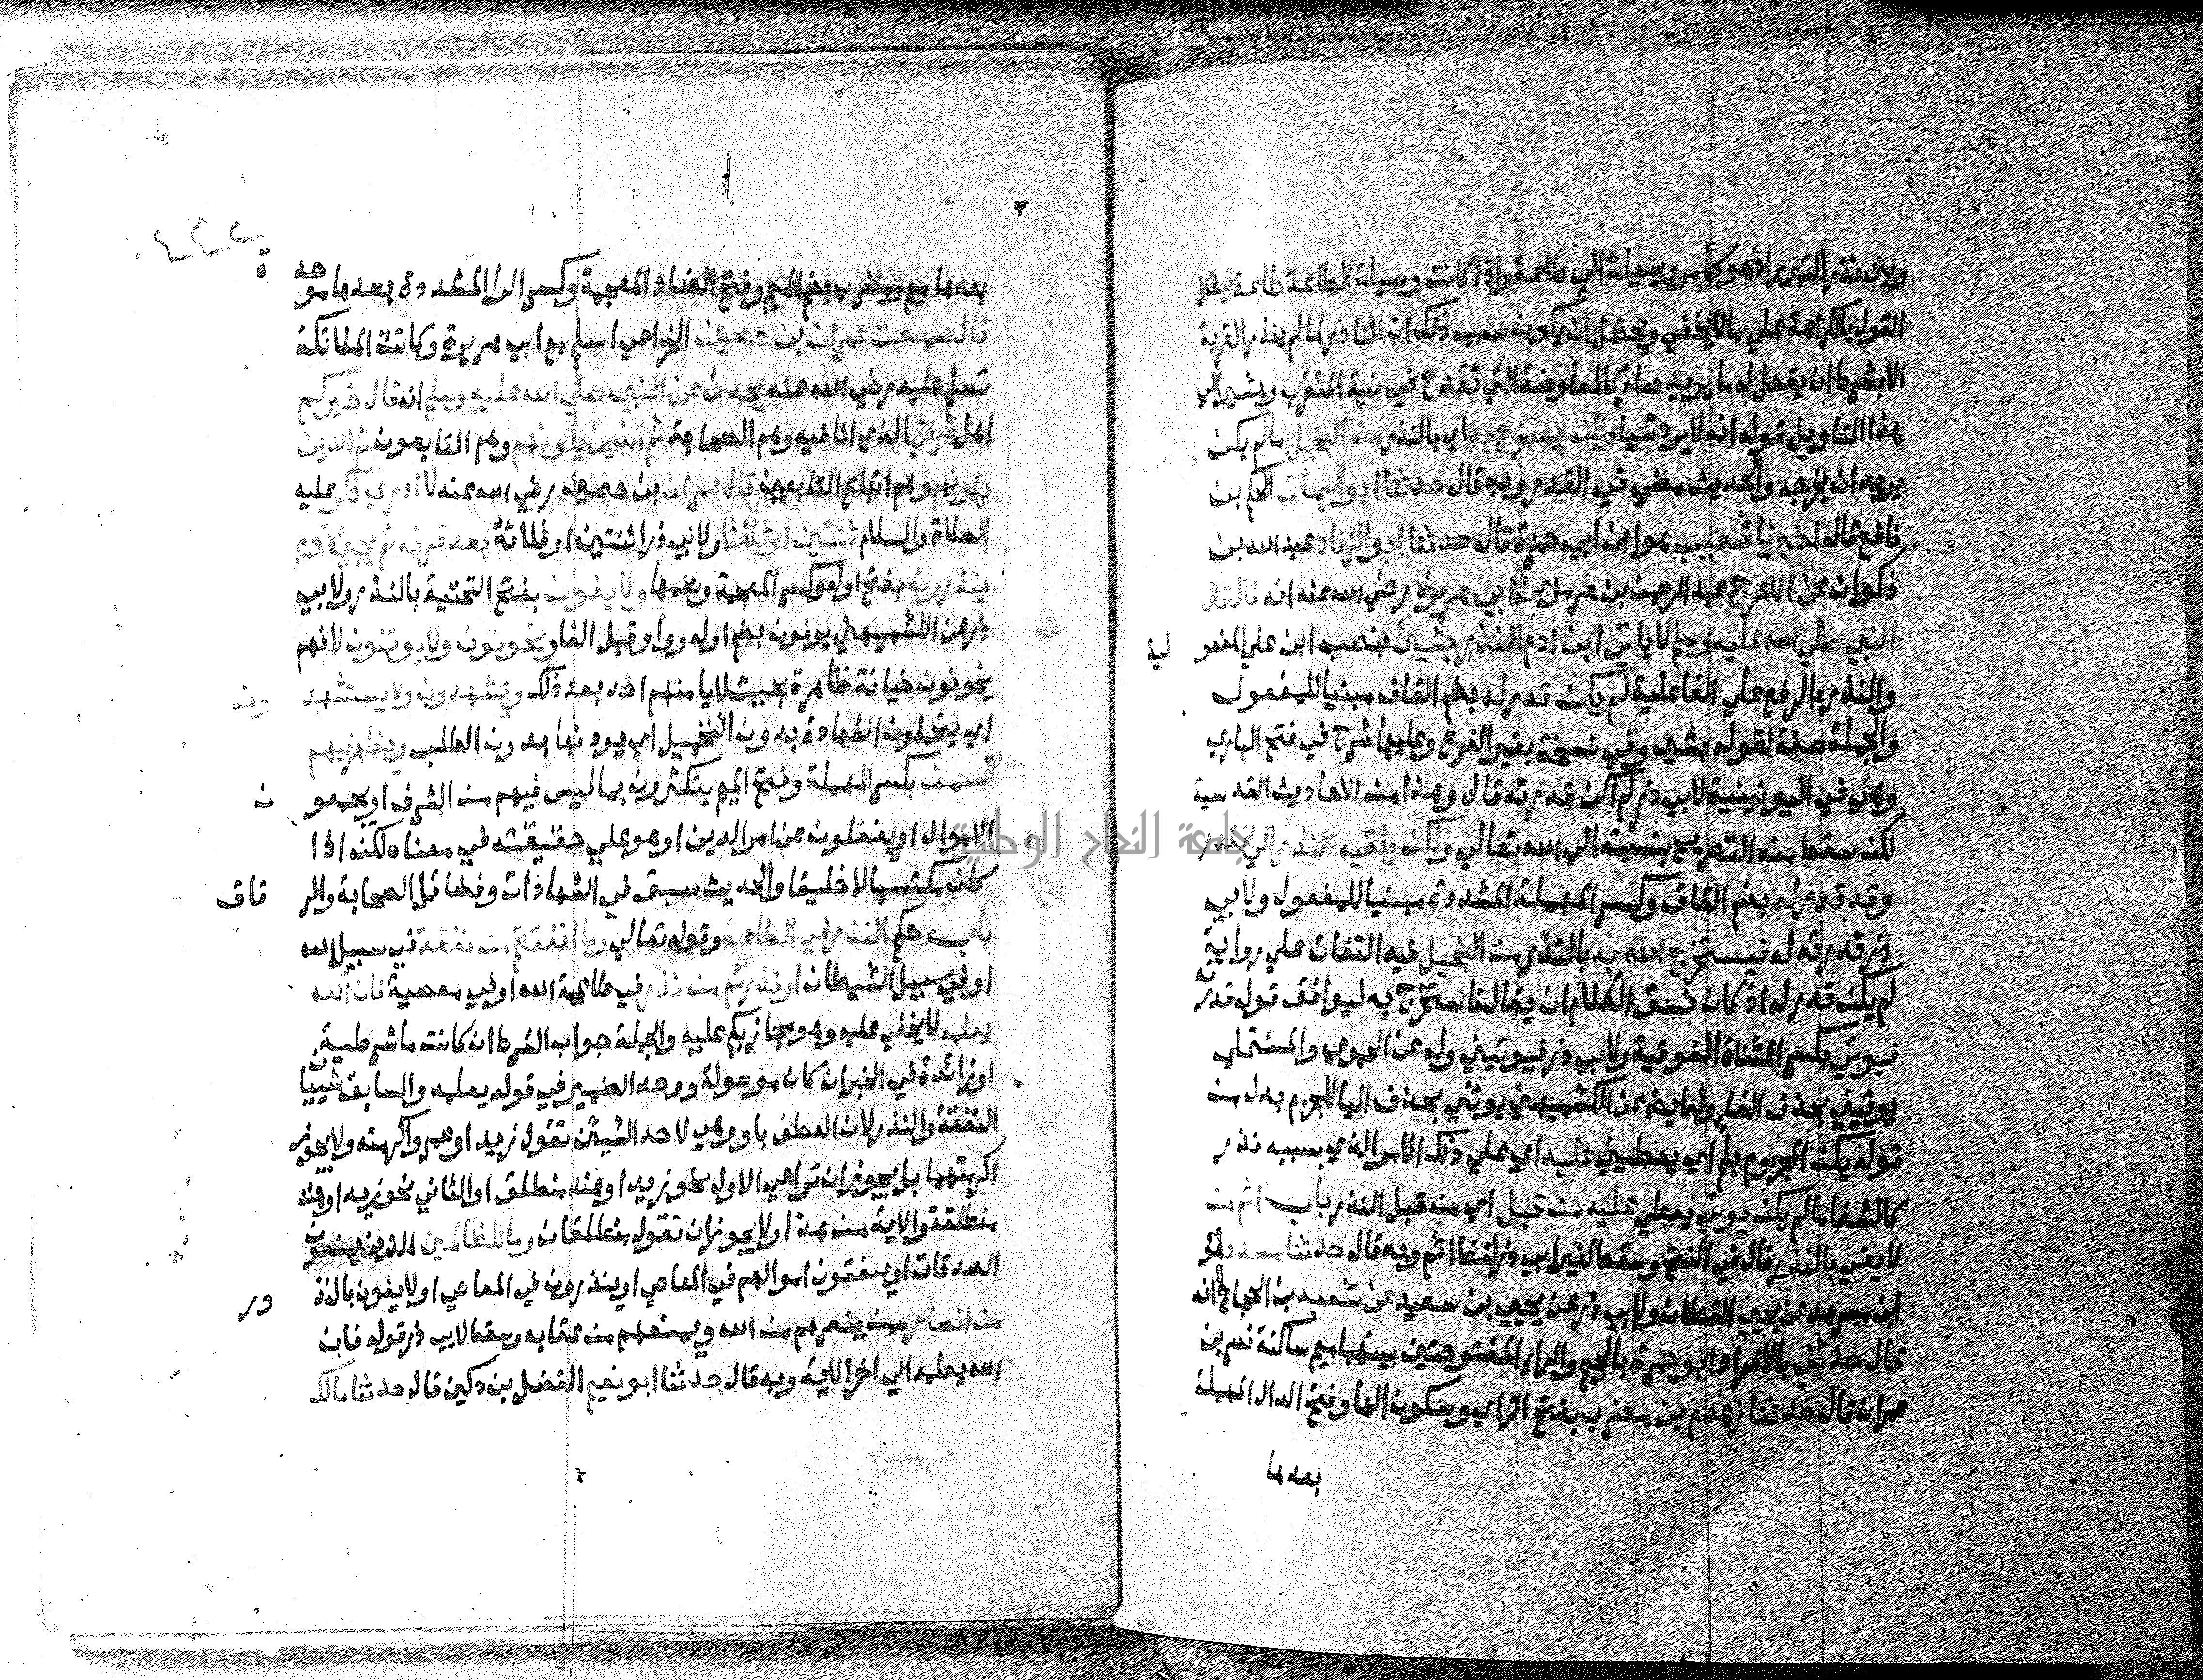 وبين نذر التبرر اذ هو كما مر وسيلة الي طاعة واذا كانت وسيلة الطاعة طاعة فيشكل
القول بالكراهة علي ما لا يخفي ويحتمل ان يكون سبب ذلك ان الناذر لما لم ينذر القربة
الا بشرط ان يفعل له ما يريد صار كالمعاوضة التي تقدح في نية المتقرب ويشير الي
هذا التاويل قوله انه لا يرد شيا ولكنه يستخرج به اي بالنذر من البخيل ما لم يكن
يريد ان يخرجه والحديث مضي في القدر وبه قال حدثنا ابو اليمان الحكم بن
نافع قال اخبرنا شعيب هو ابن ابي حمزة قال حدثنا ابو الزناد عبد الله بن
ذكوان عن الاعرج عبد الرحمن بن هرمز عن ابي هريرة رضي الله عنه انه قال قال
النبي صلي الله عليه وسلم لا ياتي ابن ادم النذر بشيئ بنصب ابن علي المفعو لية
والنذر بالرفع علي الفاعلية لم يكن قدر له بضم القاف مبنيا للمفعول
والجملة صفة لقوله بشي وفي نسخة بغير الفرع وعليها شرح في فتح الباري
وهي في اليونينية لابي ذر لم اكن قدرته قال وهذا من الاحاديث القدسية
لكن سقط منه التصريح بنسبته الي الله تعالي ولكن يلقيه النذر الي القدر
جامعة النجاح الوطنية
وقد قدر له بضم القاف وكسر المهملة المشددة مبنيا للمفعول ولابي
ذر قدرته له فيستخرج الله به بالنذر من البخيل فيه التفات علي رواية
لم يكن قدر له اذ كان نسق الكلام ان يقال فاستخرج به ليوافق قوله قدرته
فيوتي بكسر المثناة الفوقية ولابي ذر فيوتيني وله عن الحموي والمستملي
يوتيني بحذف الفا وله ايضا عن الكشميهني يوتني بحذف اليا للجزم بدل من
قوله يكن المجزوم بلم اي يعطيني عليه اي علي ذلك الامر الذي بسببه نذر
كالشفا ما لم يكن يوتي يعطي عليه من قبل اي من قبل النذر باب اثم من
لا يفي بالنذر قال في الفتح وسقط لغير ابي ذر لفظ اثم وبه قال حدثنا مسدد هو
ابن مسرهد عن يحيي القطان ولابي ذر عن يحيي بن سعيد عن شعبة بن الحجاج انه
قال حدثني بالافراد ابو جمرة بالجيم والراء المفتوحتين بينهما ميم ساكنة نصر بن
عمران قال حدثنا زهدم بن مضرب بفتح الزاي وسكون الها وفتح الدال المهملة
بعدها
بعدها ميم ومضرب بضم الميم وفتح الضاد المعجمة وكسر الرا المشددة بعدها موحدة
قال سمعت عمران بن حصين الخزاعي اسلم مع ابي هريرة وكانت الملائكة
تسلم عليه رضي الله عنه يحدث عن النبي صلي الله عليه وسلم انه قال خيركم
اهل قرني الذي انا فيه وهم الصحابة ثم الذين يلونهم وهم التابعون ثم الذين
يلونهم وهم اتباع التابعين قال عمران بن حصين رضي الله عنه لا ادري ذكر عليه
الصلاة والسلام ثنتين او ثلاثا ولابي ذر اثنتين او ثلاثة بعد قرنه ثم يجيئ قوم
ينذرون بفتح اوله وكسر المعجمة وضمها ولا يفون بفتح التحتية بالنذر ولابي
ذر عن الكشميهني يوفون بضم اوله وواو قبل الفا ويخونون ولا يوتمنون لانهم
يخونون خيانة ظاهرة بحيث لا يامنهم احد بعد ذلك ويشهدون ولا يستشهد ون
اي يتحملون الشهادة بدون التحميل اي يودونها بدون الطلب ويظهر فيهم
السمن بكسر المهملة وفتح الميم يتكثرون بما ليس فيهم من الشرف او يجمعو ن
الاموال او يغفلون عن امر الدين او هو علي حقيقته في معناه لكن اذا
كان مكتسبا لا خليقا والحديث سبق في الشهادات وفضائل الصحابة والر قاق
باب حكم النذر في الطاعة وقوله تعالي وما انفقتم من نفقة في سبيل الله
او في سبيل الشيطان او نذرتم من نذر في طاعة الله او في معصية فان الله
يعلمه لا يخفي عليه وهو مجازيكم عليه والجملة جواب الشرط ان كانت ما شرطية
او زائدة في الخبر ان كان موصولة ووحد الضمير في قوله يعلمه والسابق شيئان
النفقة والنذر لان العطف باو وهي لاحد الشيئين تقول زيد او عمرو اكرمته ولا يجوز
اكرمتهما بل يجوز ان تراعي الاول نحو زيد او هند منطلق او الثاني نحو زيد او هند
منطلقة والاية من هذا ولا يجوز ان تقول منطلقان وما للظالمين الذين يمنعون
الصدقات او ينفقون اموالهم في المعاصي او ينذرون في المعاصي او لا يفون بالنذ ور
من انصار من ينصرهم من الله ويمنعهم من عقابه وسقط لابي ذر قوله فان
الله يعلمه الي اخر الاية وبه قال حدثنا ابو نعيم الفضل بن دكين قال حدثنا مالك